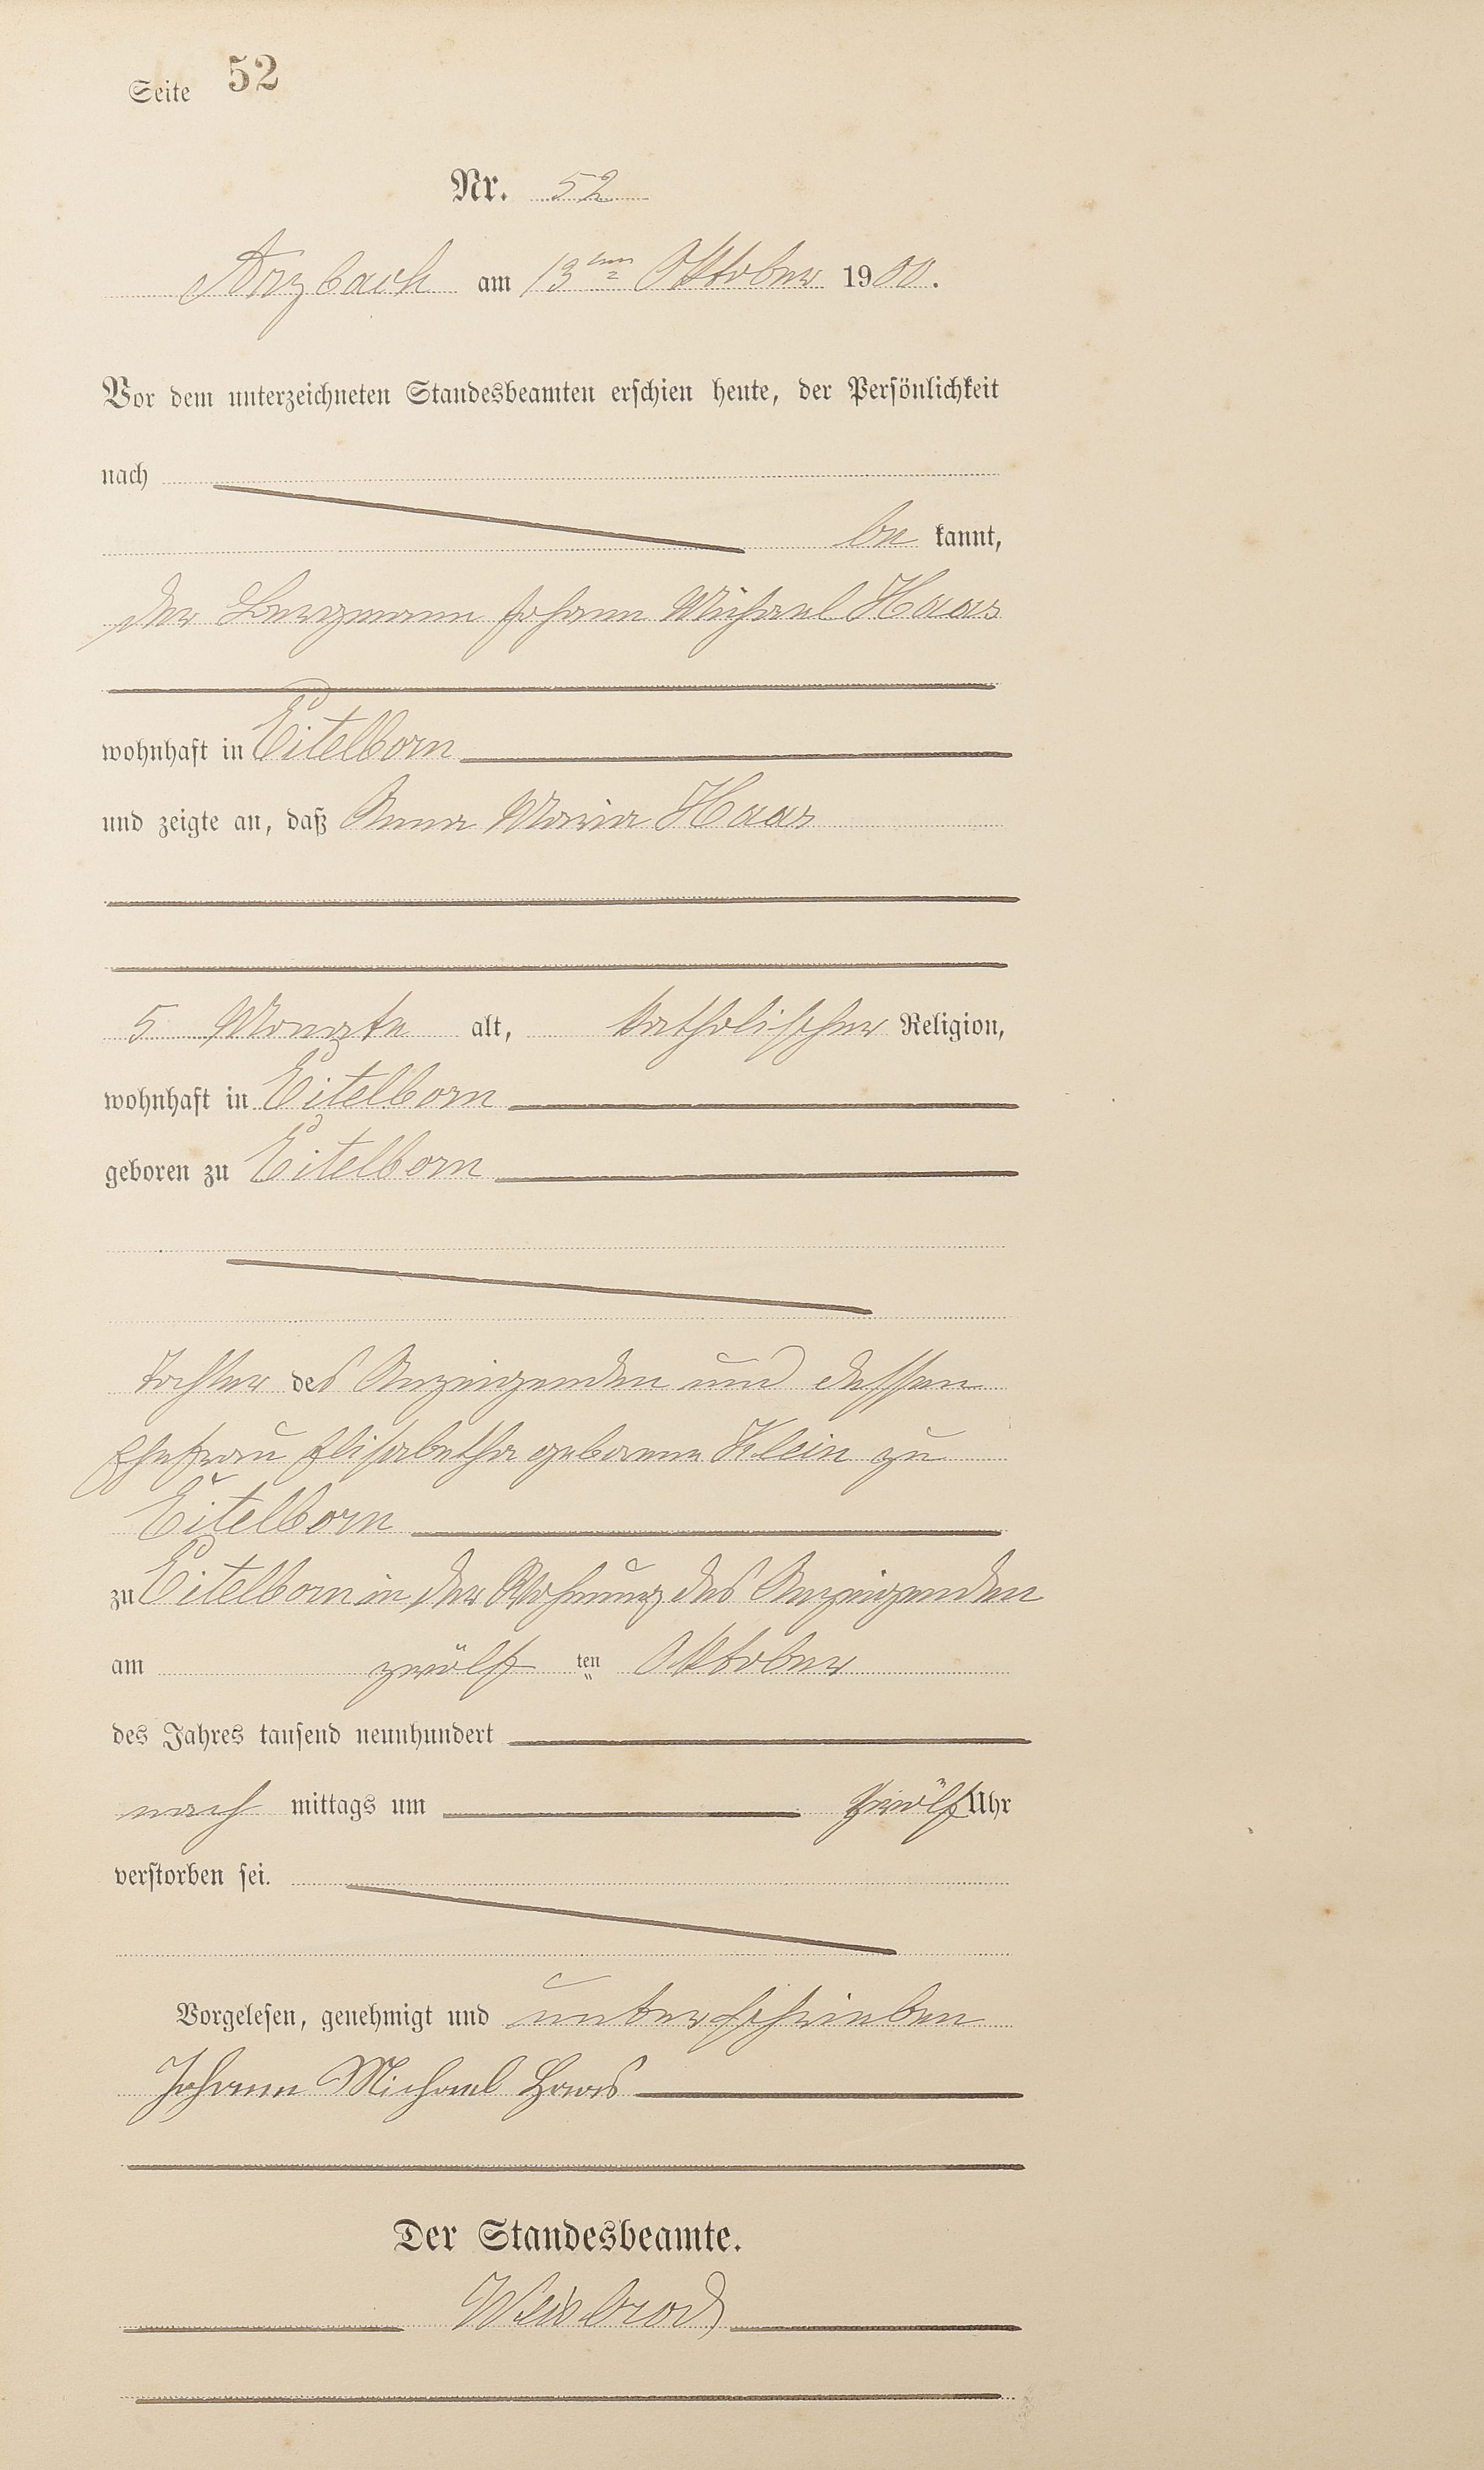 Seite 52
Nr. 52
Arzbach am 13ten Oktober 1900.
Vor dem unterzeichneten Standesbeamten erschien heute, der Persönlichkeit
nach
be kannt,
der Bergmann Johann Michael Haas
wohnhaft in Eitelborn
und zeigte an, daß Anna Maria Haas
5 Monate alt, katholischer Religion,
wohnhaft in Eitelborn
geboren zu Eitelborn
Tochter des Anzeigenden und dessen
Ehefrau Elisabetha geborene Klein zu
Eitelborn
zu Eitelborn in der Wohnung des Anzeigenden
am zwölf ten Oktober
des Jahres tausend neunhundert
nach mittags um zwölf Uhr
verstorben sei.
Vorgelesen, genehmigt und unterschrieben
Johann Michael Haas
Der Standesbeamte.
Weisbrod